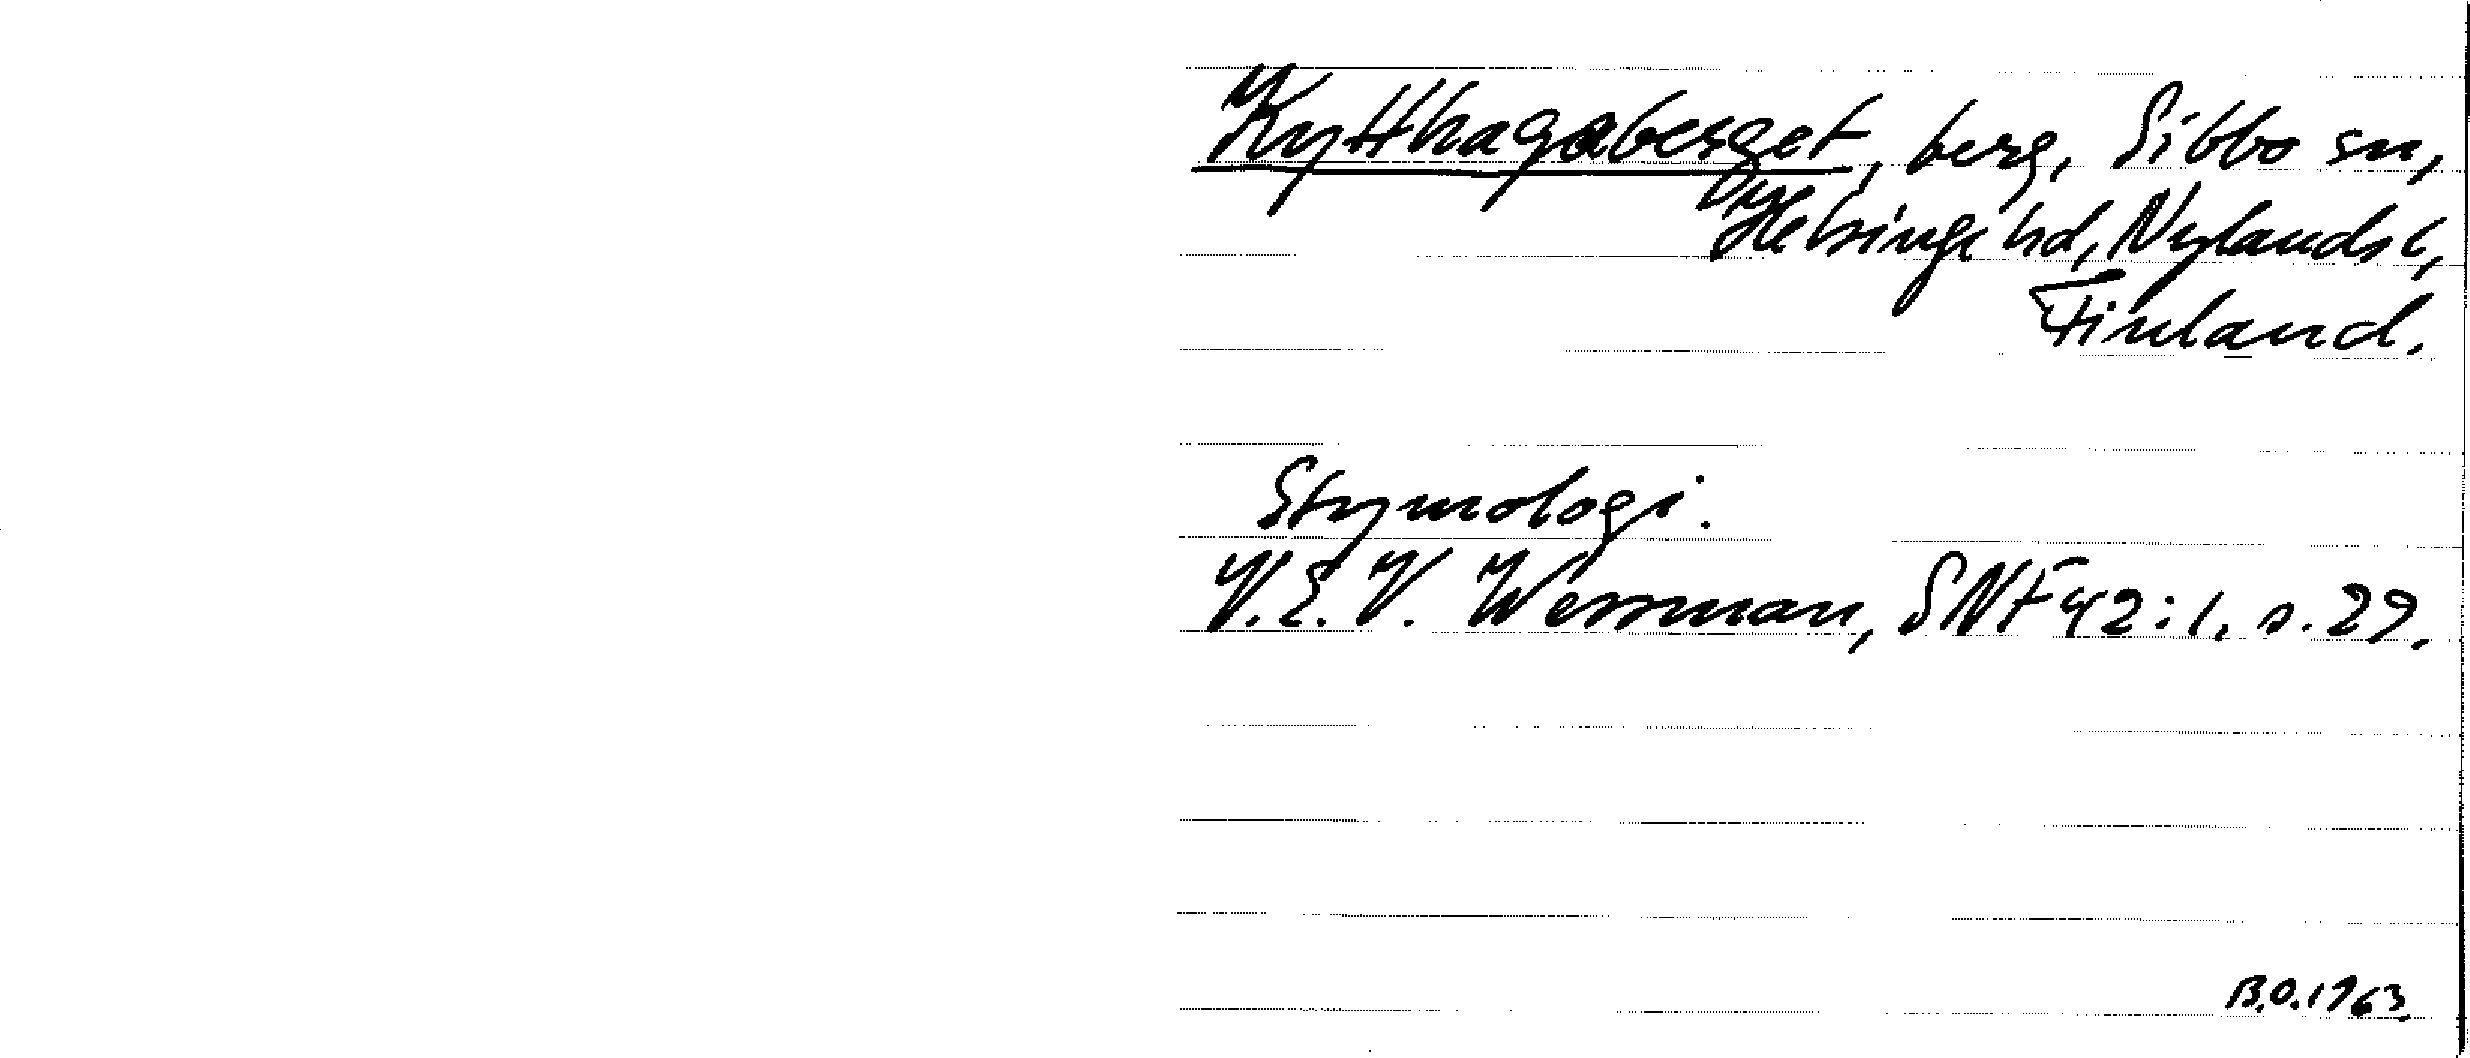 Kytthagaberget, berg, Sibbo sn,
Helsinge hd, Nylands l,
Finland.
Etymologi.
V.E.V. Wessman, SNF 42:1. s. 29.
B.O. 1963